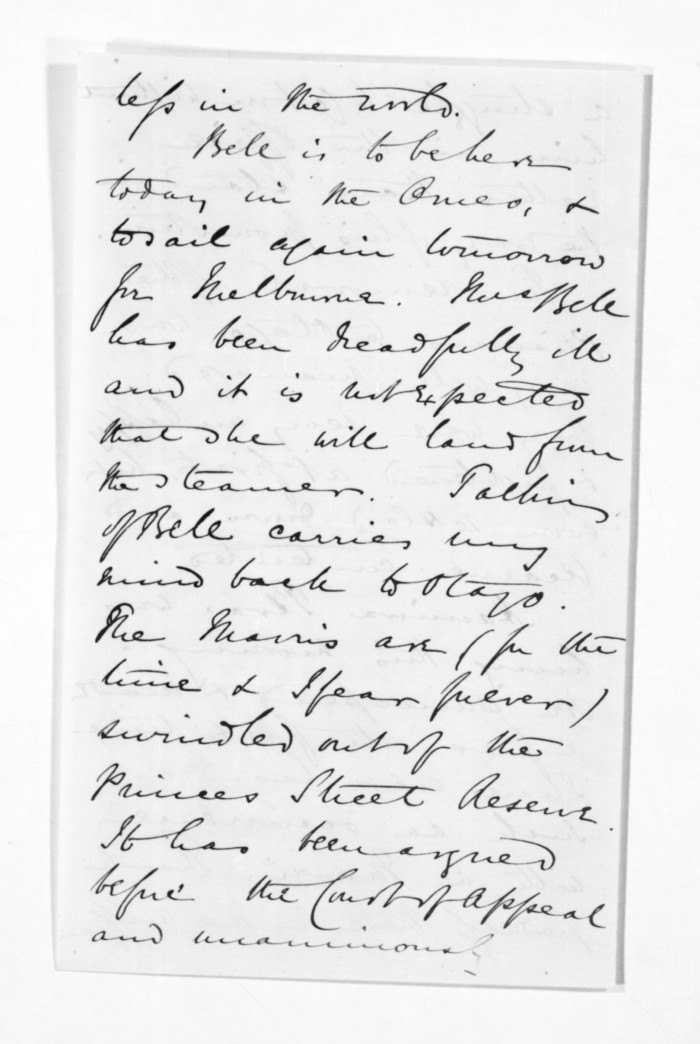 less in the world.
Bell is to be here
today in the Omeo, &
to sail again tomorrow
for Melbourne. Mrs Bell
has been dreadfully ill
and it is not expected
that she will land from
the steamer. Talking
of Bell carries my
mind back to Otago.
The Maoris are (for the
time & I fear forever)
swindled out of the
Princes Street Reserve.
It has been argued
before the Court of Appeal
and unanimously